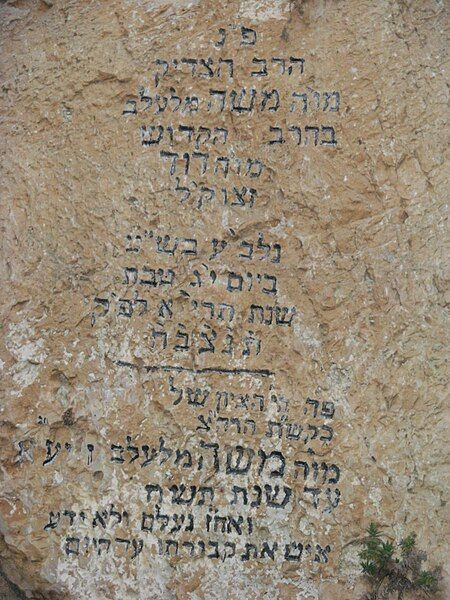 פ״נ
הרב הצדיק
מו״ה משה מלעלב
בהרב הקדוש
מו״ה דוד
זצוק״ל
נלב״ע בש״ט
ביום י״ג טבת
שנת תרי״א לפ״ק
תנצבה
פה הציון של
כקש״ת הרה״צ
מו״ה משה מלעלב זיע״א
עד שנת תש״ח
ואח״ז נעלם ולא ידע
איש את קבורתו עד היום